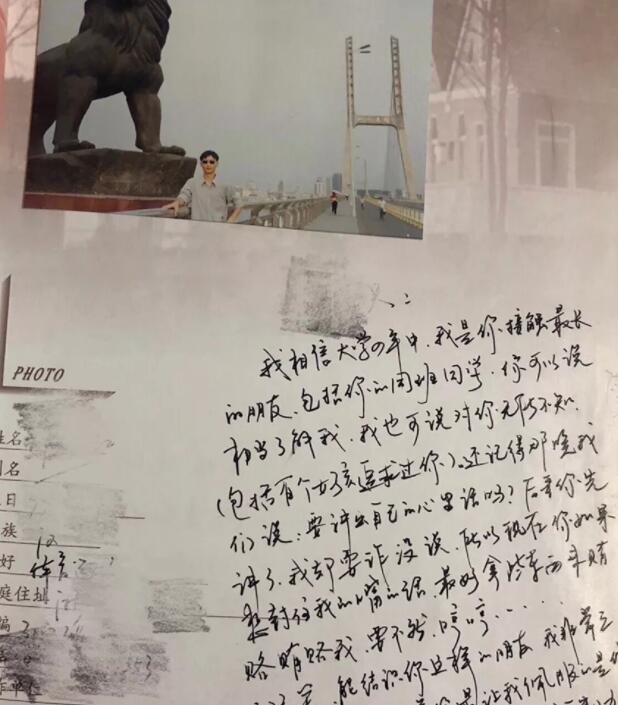 二
我相信大学四年中，我是你接触最长
的朋友，包括你的同班同学，你可以说
相当了解我，我也可说对你无所不知，
(包括有个女孩追求过你)。还记得那晚我
们说：要讲出自己的心里话吗？后来你先
讲了，我却耍诈没说，所以现在你如果
想封住我的嘴的话，最好拿些东西来贿
赂贿赂我，要不然，哼哼……
能结识你这样的朋友，我非常
让我佩服的是
PHOTO
姓名
日
族
好 体育
庭住址